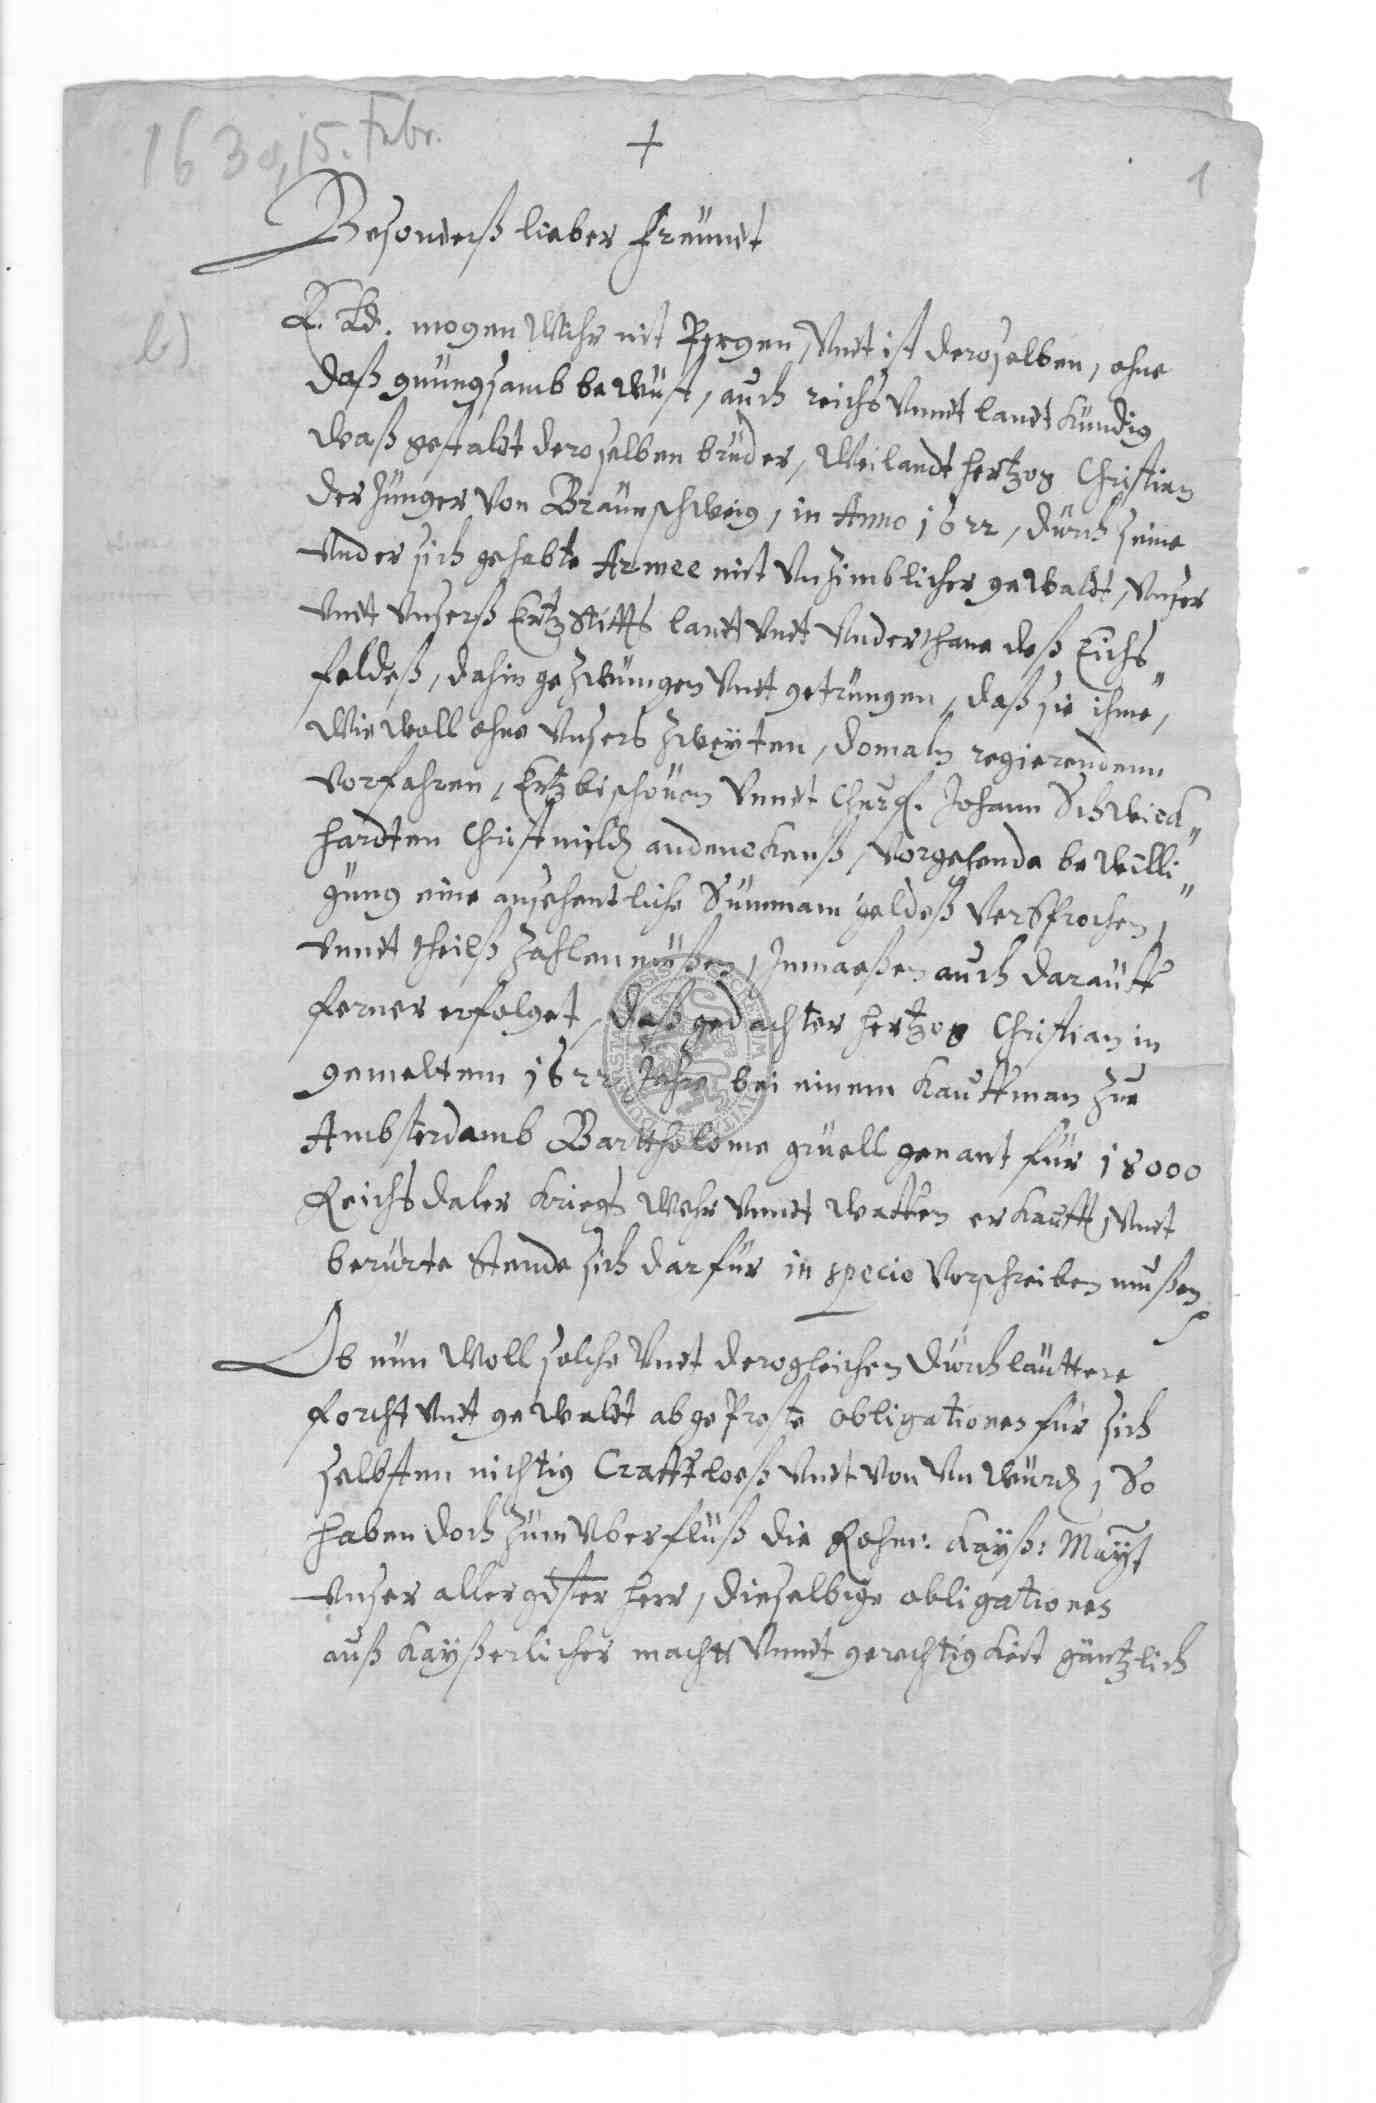 1630, 15. Febr.
+
1
Besonderß lieber Freündt
b)
E. Ld. mögen Wihr nit Pergen, Vndt ist deroselben, ohne
daß gnüngsamb bewüst, auch reichs Vnndt landt kündig
waß gestaldt deroselben brüder, Weilandt hertzog Christian
der Jünger Von Braünschweig, in Anno 1622, dürch seine
Vnder sich gehabte Armee mit Vnzimblicher gewaldt, Vnser
Vndt Vnserß Ertz Stiffts landt Vndt Vnderthane deß Eichs„
feldeß, dahin gezwüngen Vndt getrüngen, daß sie ihme,
Wiewoll ohne Vnsers zweyten, domaln regierendenn
Vorfahren, Ertzbischouen Vnndt Churf. Johann Schweick„
hardten Christmildt andenckenß, Vorgehende bewilli„
güng eine ansehentliche Summam geldeß Versprochen,
Vnndt theilß zahlen müßen, Inmaeßen auch daraüff
ferner erfolget, daß gedachter hertzog Christian in
gemeltem 1622 Jahre bei einem Kauffman zue
Ambsterdamb Barthólome grüell genant für 18000
Reichsdaler Kriegs Wehr Vnndt Waffen erkaufft, Vndt
berürte Stende sich darfür in specie Verschreiben müßen,
Ob nün Woll solche Vndt derogleichen dürch laüttere
forcht Vndt gewaldt abgepreste obligationes für sich
selbsten nichtig Crafftloeß Vndt Von Vnwürd, So
haben doch züm Vberflüß die Röhm: Kayß: Mayt
Vnser allergdster herr, dieselbige obligationes
auß Kayßerlicher macht Vnndt gerechtigkeit gäntzlich